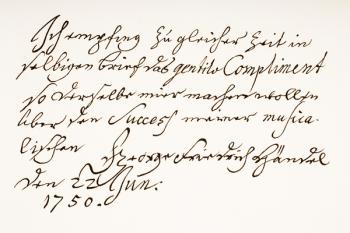 Ich empfing zu gleicher Zeit in
selbigen brief das gentile Compliment
so derselbe mier machen wollen
über den Success meiner musica-
lischen George Friedrich Händel
den 22 Jun:
1750.